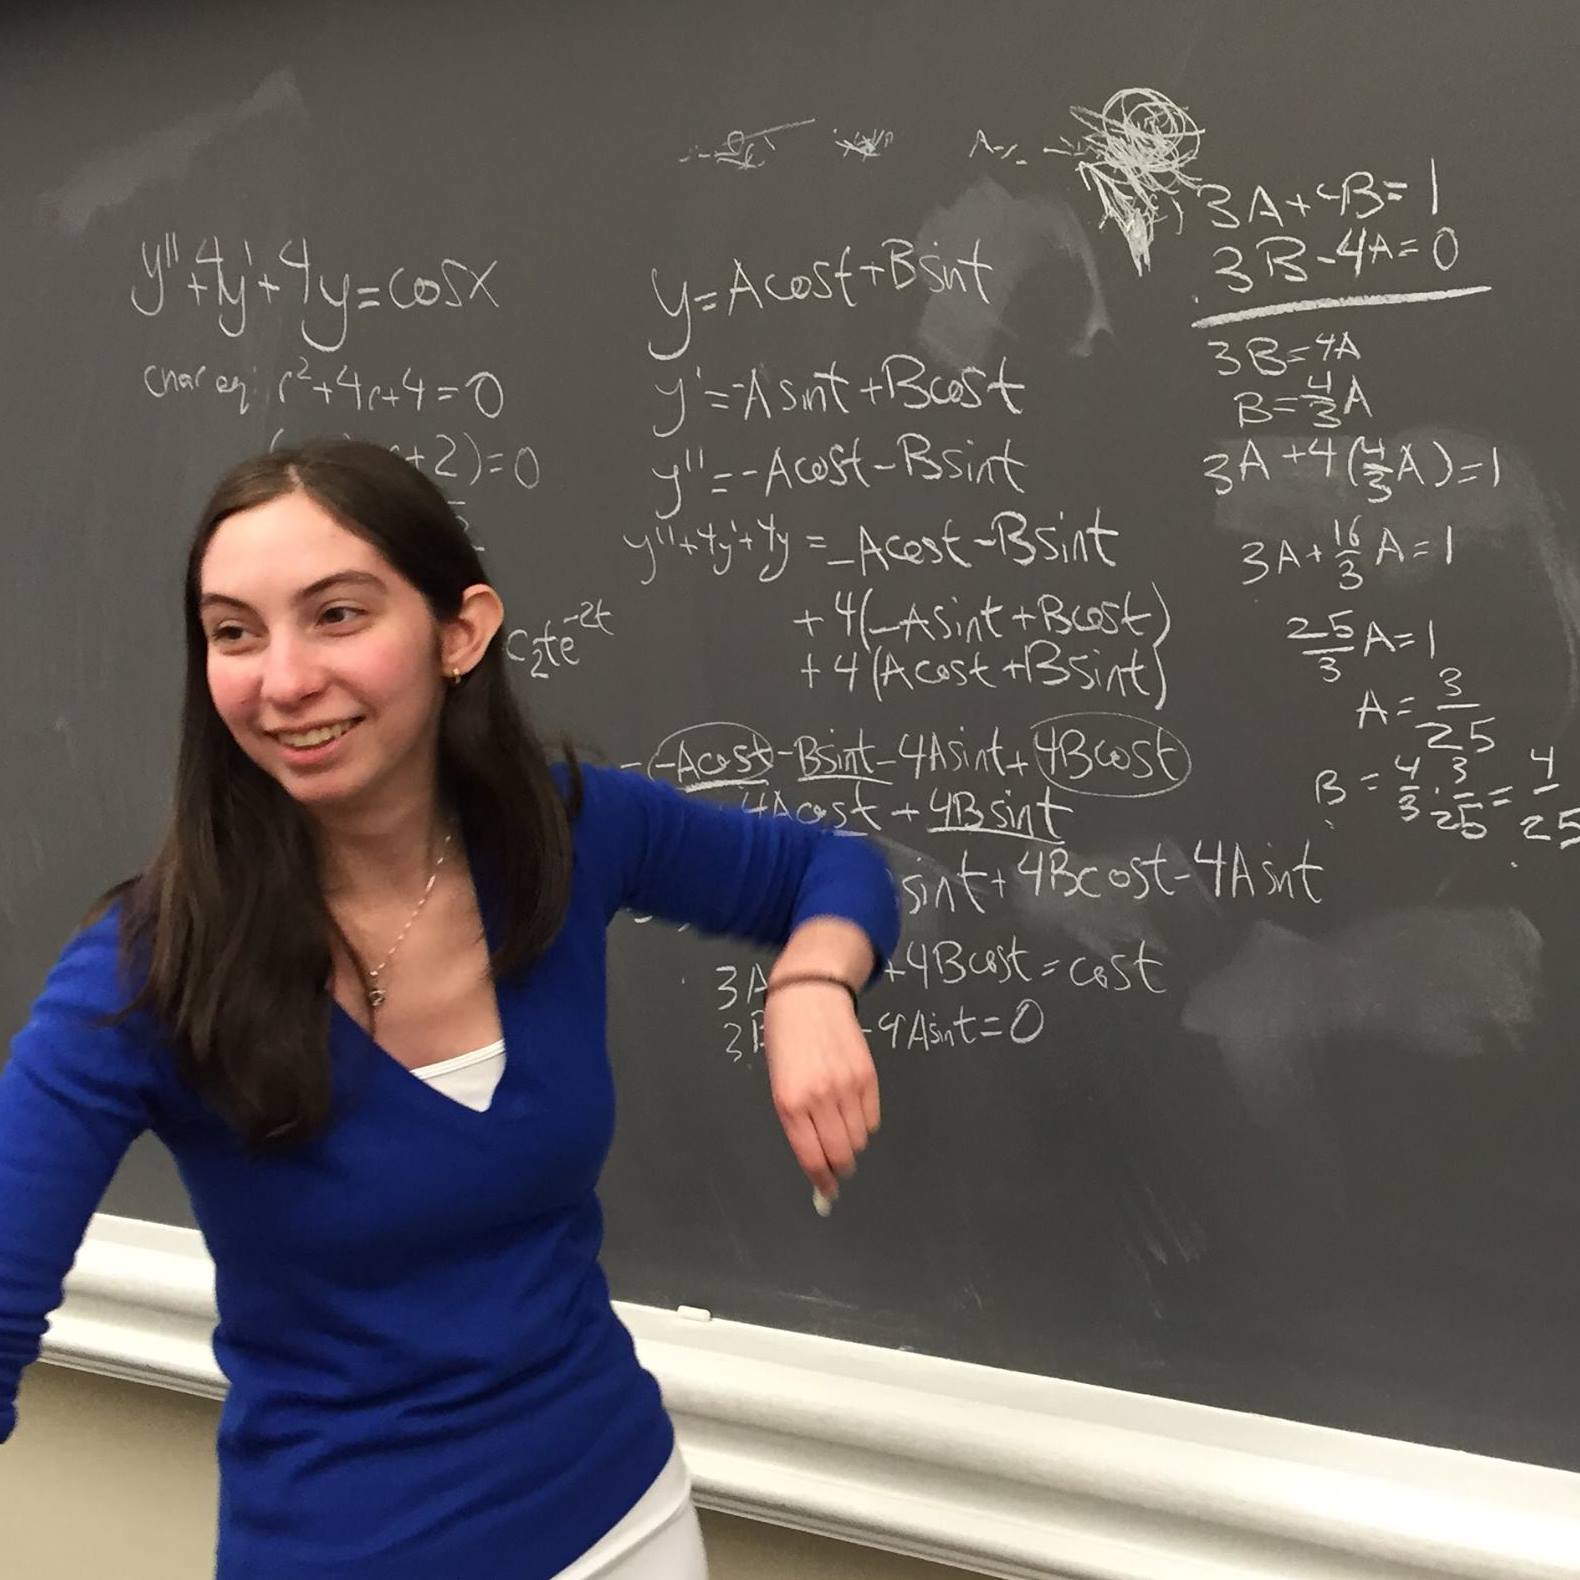 y''+4y'+4y=cosx
char eq: r²+4r+4=0
+2)=0
c₂te^-2t
y=Acost+Bsint
y'=-Asint+Bcost
y''=-Acost-Bsint
y''+4y'+4y=-Acost-Bsint
+4(-Asint+Bcost)
+4(Acost+Bsint)
-Acost-Bsint-4Asint+4Bcost
4Acost+4Bsint
sint+4Bcost-4Asint
3A +4Bcost=cost
3B -4Asint=0
3A+4B=1
3B-4A=0
3B=4A
B=4/3A
3A+4(4/3A)=1
3A+16/3A=1
25/3A=1
A=3/25
B=4/3·3/25=4/25